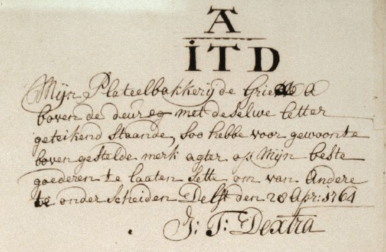 A
ITD
Mijn Plateelbakkerij de Grieksе A
boven de deur en met deselve letter
geteikend staande, soo hebbe voor gewoonte
boven gestelde merk agter op Mijn beste
goederen te laaten sett om van Andere
te onder scheiden Delft den 28 Apr: 1764
J: T: Dextra